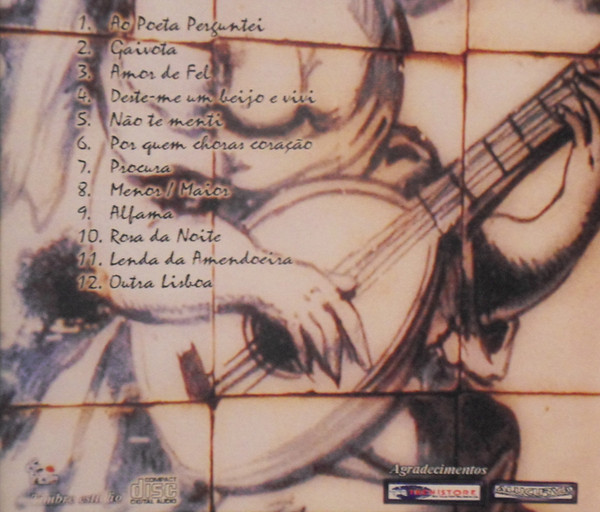 1. Ao Poeta Perguntei
2. Gaivota
3. Amor de Fel
4. Deste-me um beijo e vivi
5. Não te menti
6. Por quem choras coração
7. Procura
8. Menor / Maior
9. Alfama
10. Rosa da Noite
11. Lenda da Amendoeira
12. Outra Lisboa
Agradecimentos
COMPACT
disc
DIGITAL AUDIO